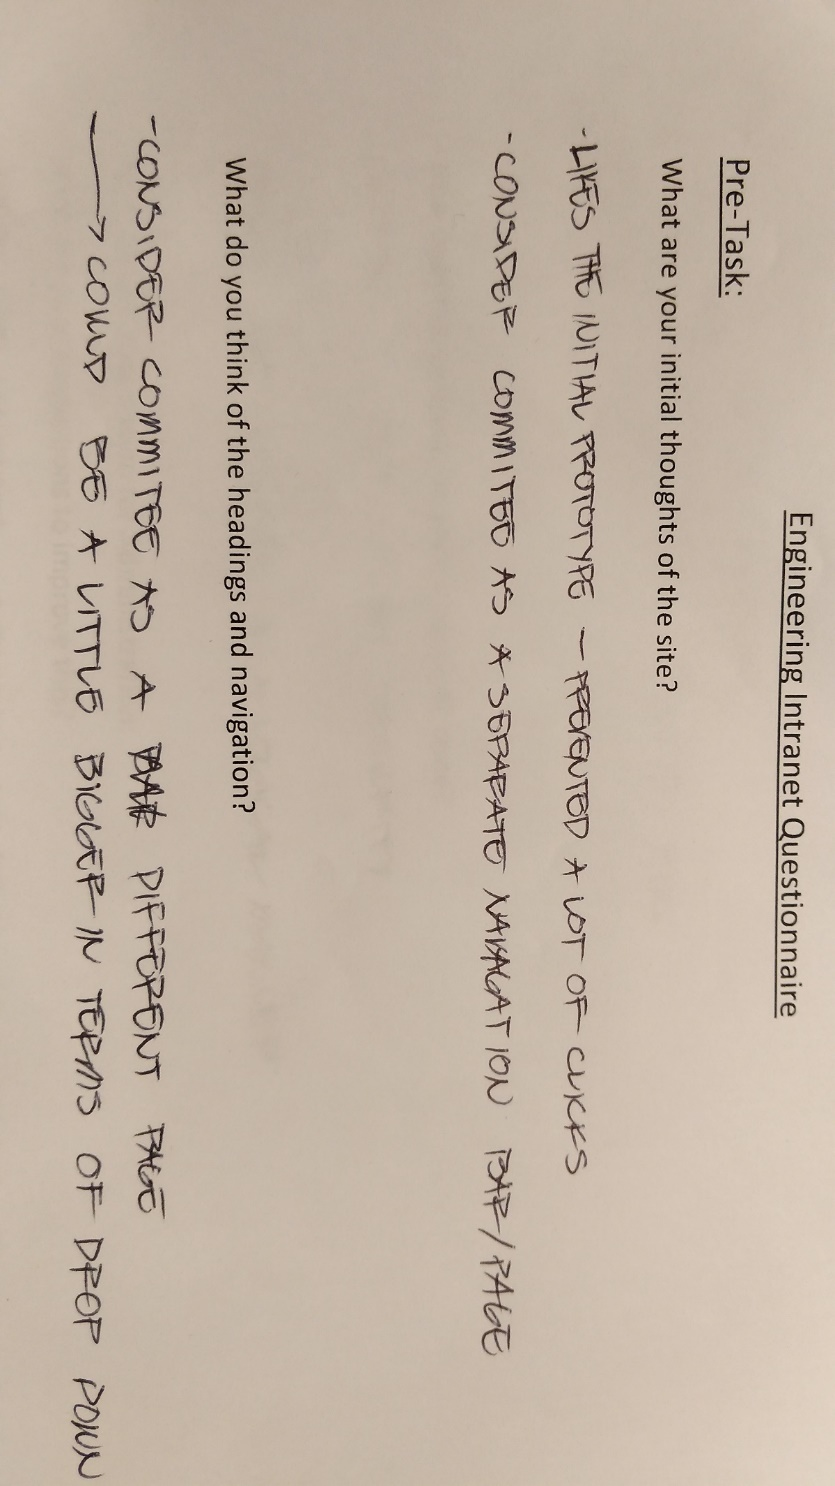 Engineering Intranet Questionnaire
Pre-Task:
What are your initial thoughts of the site?
-LIKES THE INITIAL PROTOTYPE - PREVENTED A LOT OF CLICKS
-CONSIDER COMMITEE AS A SEPARATE NAVAGATION BAR/PAGE
What do you think of the headings and navigation?
-CONSIDER COMMITEE AS A DIFFERENT PAGE
→ COULD BE A LITTLE BIGGER IN TERMS OF DROP DOWN